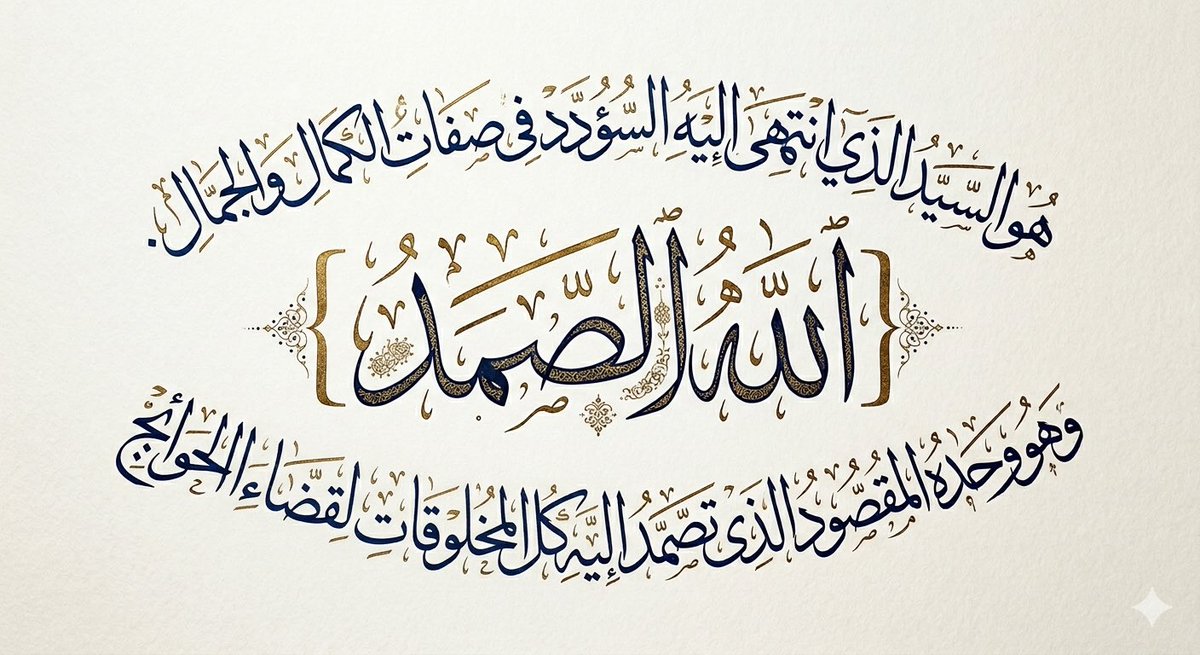 هُو السَّيِّدُ الَّذِي انْتَهَى إلَيْهِ السُّؤدَد فِي صَفَاتِ الكَمَالِ وَالجَمَالِ.
{اللَّهُ الصَّمَدُ}
وَهُو وَحَدَهُ المَقصُودُ الَّذِى تَصَمَدُ إِلَيهِ كُل المَخلُوقَاتِ لِقَضَاءِ الحَوَائجِ